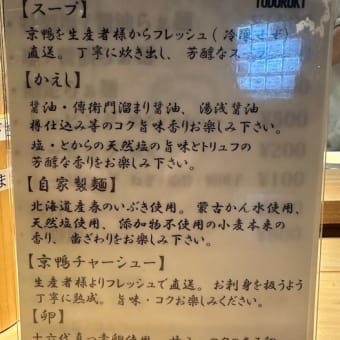 TODOROKI
【スープ】
京鴨を生産者様からフレッシュ(冷凍せず)
直送。丁寧に炊き出し、芳醇な
【かえし】
醤油・傳右衛門溜まり醤油、湯浅醤油
樽仕込み等のコク旨味香りお楽しみ下さい。
塩・とからの天然塩の旨味とトリュフの
芳醇な香りをお楽しみ下さい。
【自家製麺】
北海道産春のいぶき使用。蒙古かん水使用、
天然塩使用、添加物不使用の小麦本来の
香り、歯ざわりをお楽しみ下さい。
【京鴨チャーシュー】
生産者様よりフレッシュで直送。お刺身を扱うよう
丁寧に熟成。旨味・コクお楽しみください。
【卵】